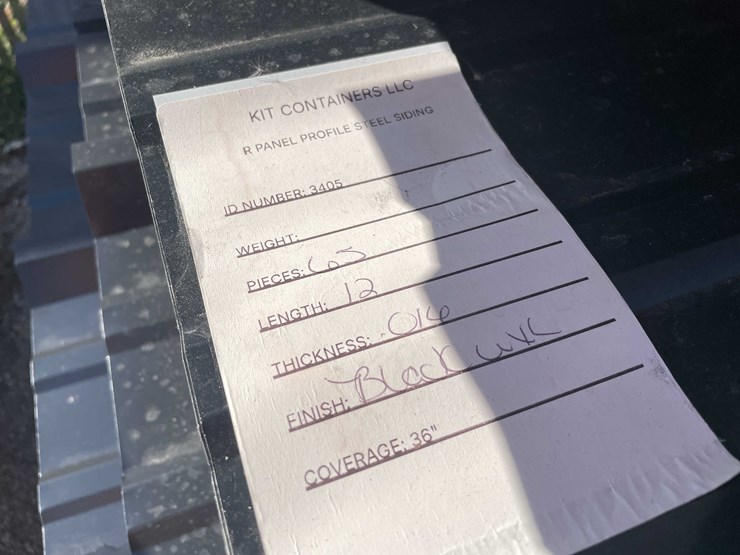 KIT CONTAINERS LLC
R PANEL PROFILE STEEL SIDING
ID NUMBER: 3405
WEIGHT:
PIECES: 65
LENGTH: 12
THICKNESS: .016
FINISH: Black
COVERAGE: 36"